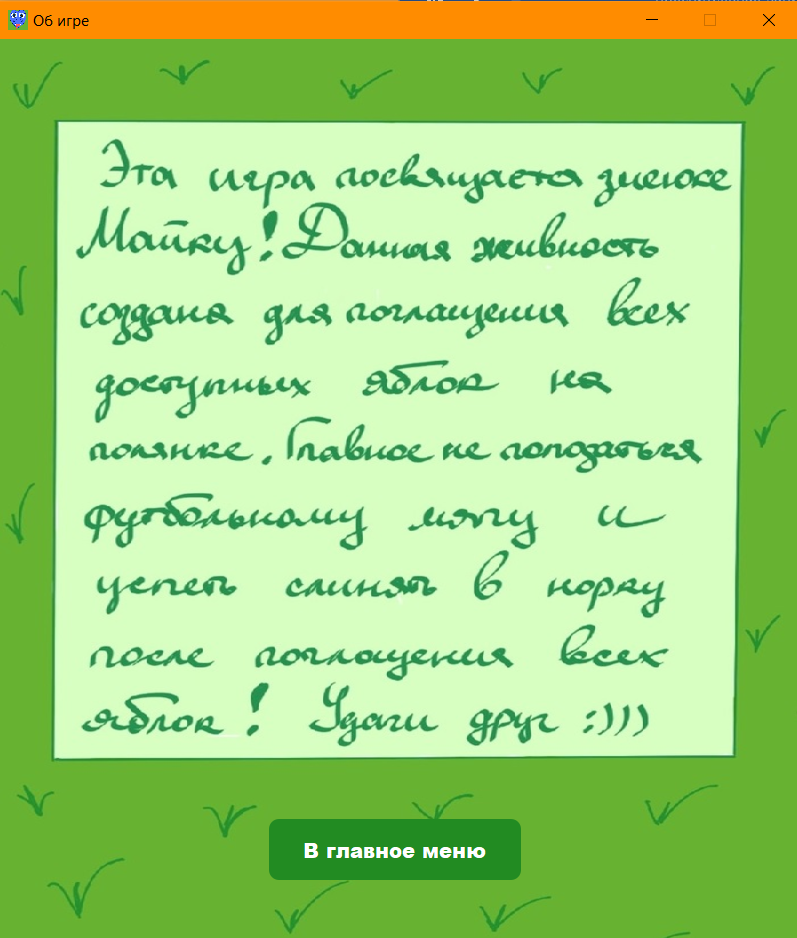 Об игре
Эта игра посвящается змеюке
Майку! Данная живность
создана для поглащения всех
доступных яблок на
полянке. Главное не поподаться
футбольному мячу и
успеть слинять в норку
после поглощения всех
яблок! Удачи друг :)))
В главное меню